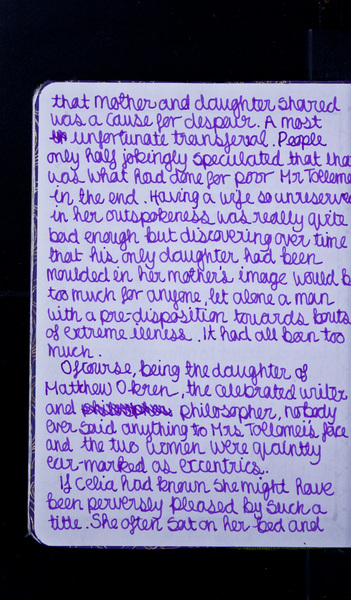 that mother and daughter shared
was a cause for despair. A most
unfortunate transferal. People
only half jokingly speculated that that
was what had done for poor Mr Tolleme
in the end. Having a wife so unreserve
in her outspokeness was really quite
bad enough but discovering over time
that his only daughter had been
moulded in her mother's image would b
too much for anyone, let alone a man
with a pre-disposition towards bouts
of extreme illness. It had all been too
much.
Ofcourse, being the daughter of
Matthew Okren, the celebrated writer
and philosopher, nobody
ever said anything to Mrs Tollemei's face
and the two women were quaintly
ear-marked as eccentrics.
If Celia had known she might have
been perversly pleased by such a
title. She often sat on her bed and